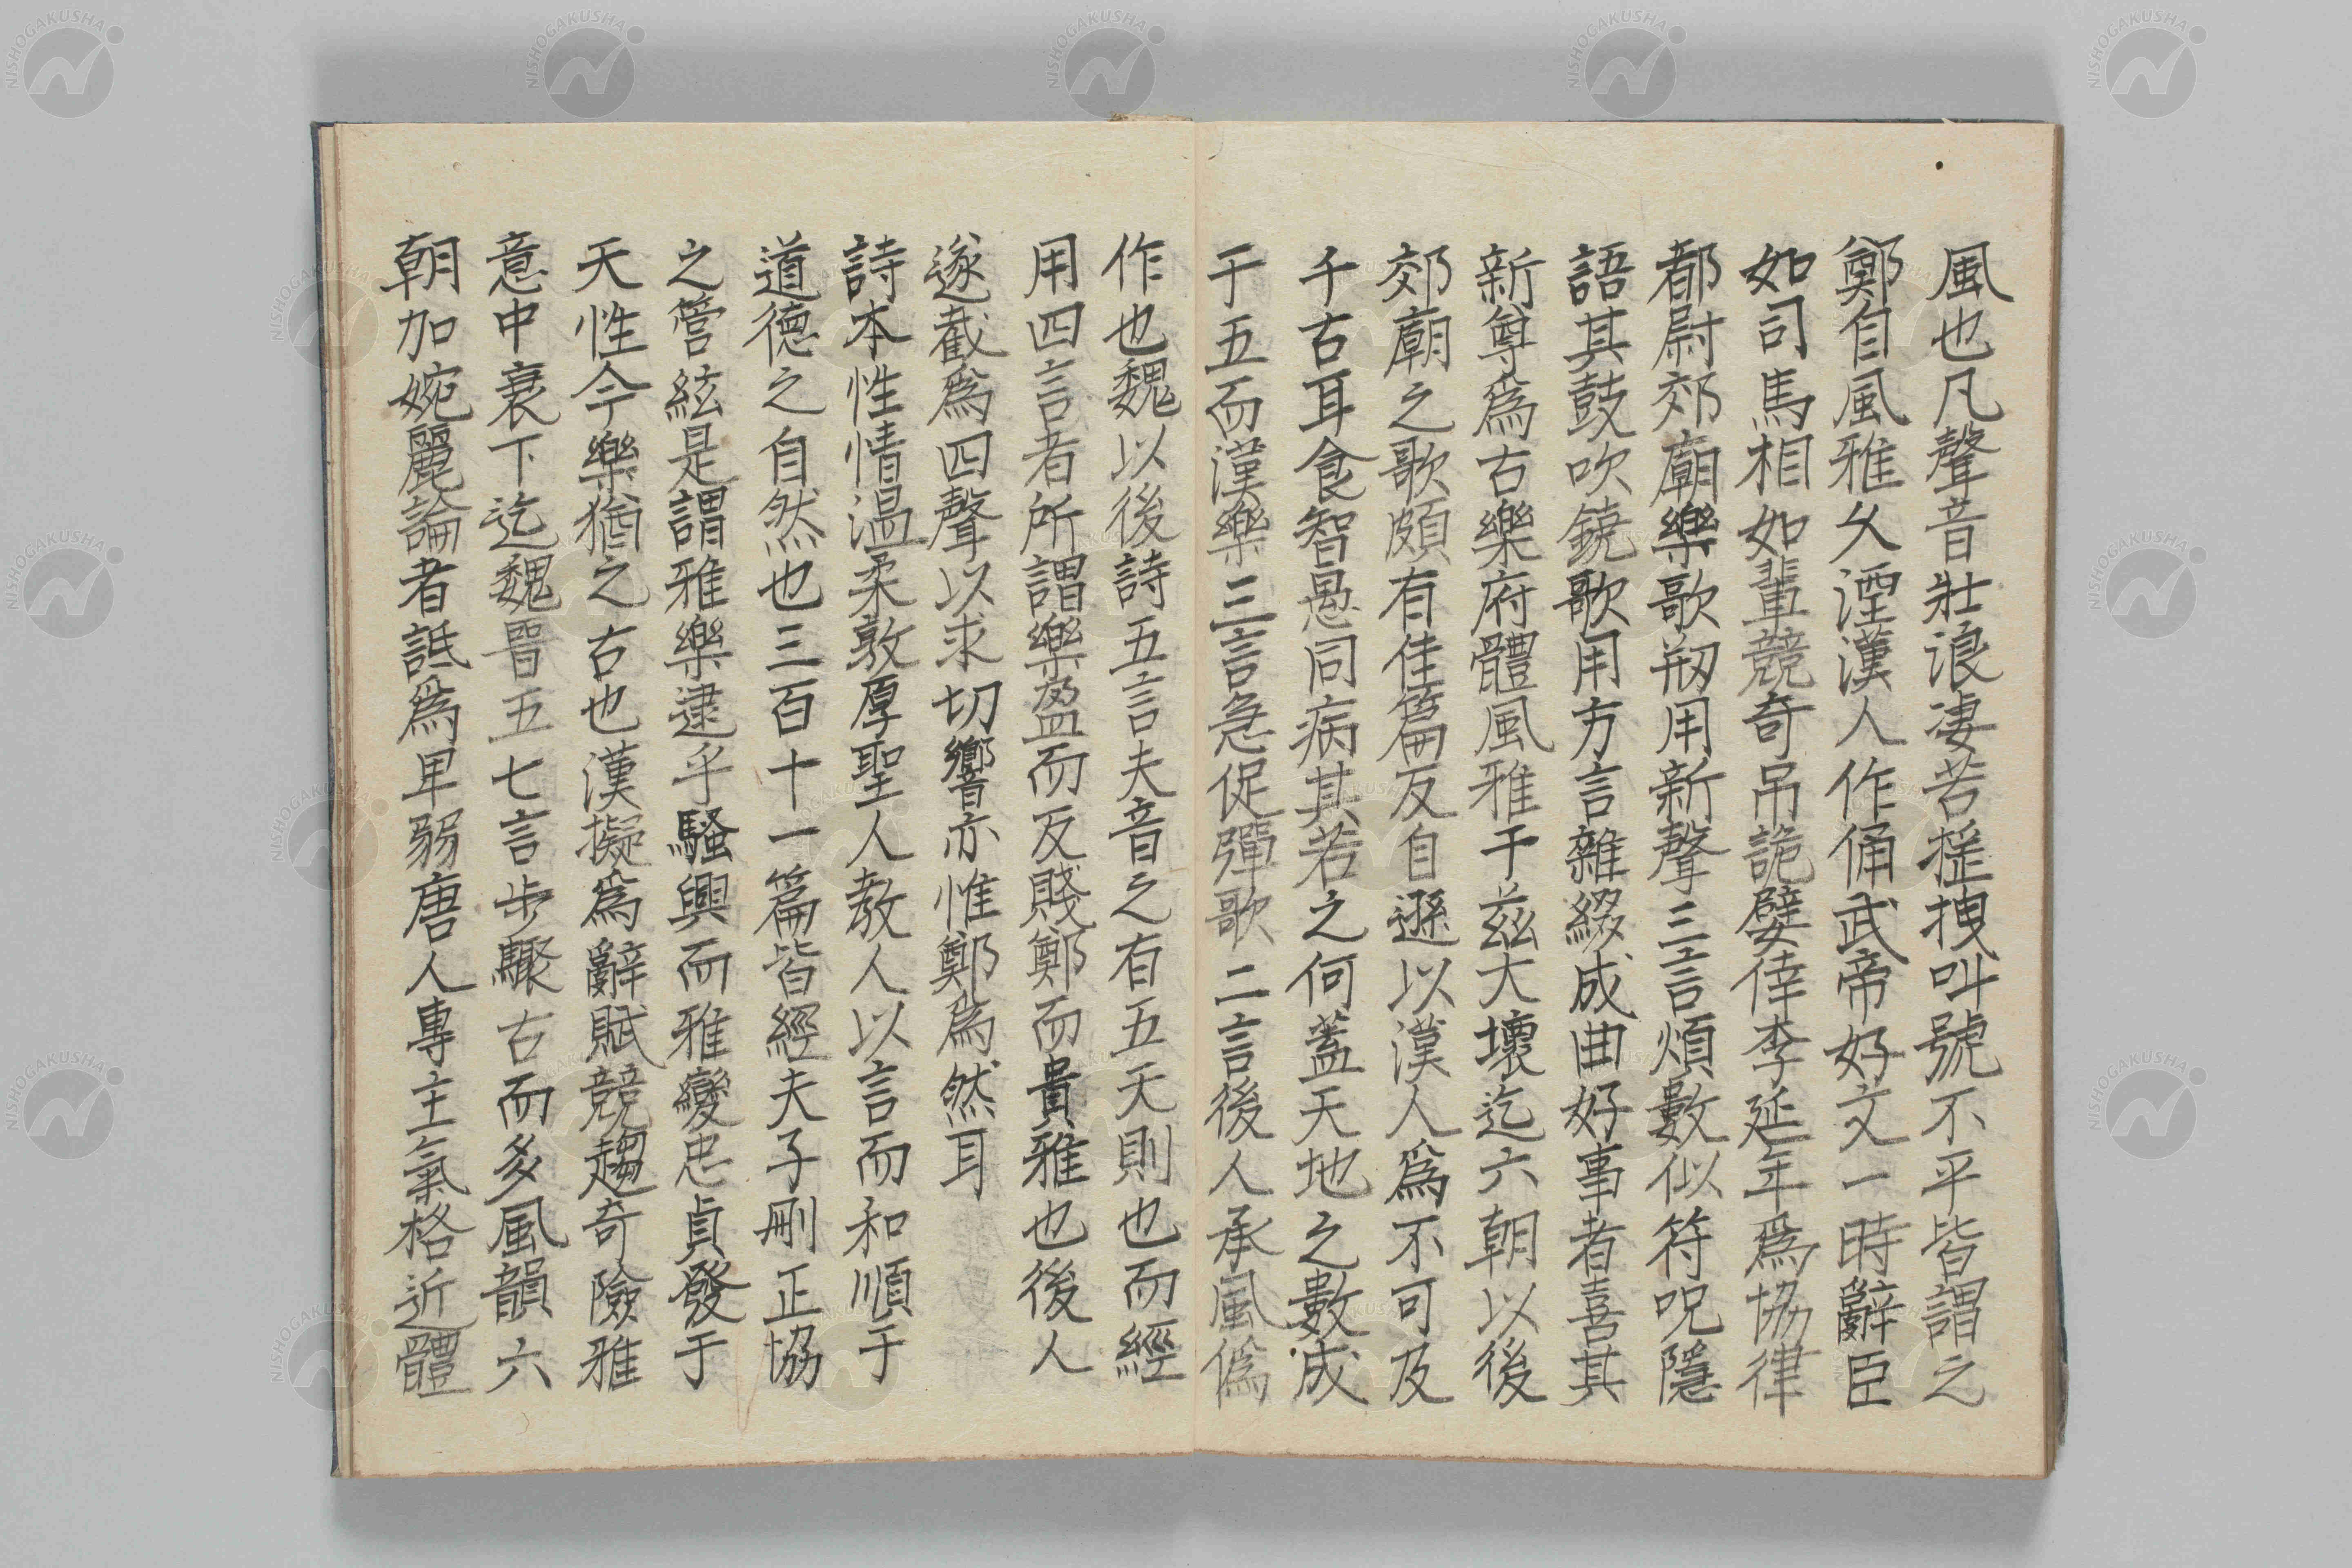 風也凡聲音壯浪凄苦搖拽叫號不平皆謂之
鄭自風雅久湮漢人作俑武帝好文一時辭臣
如司馬相如輩競奇吊詭嬖倖李延年爲協律
都尉郊廟樂歌剏用新聲三言煩數似符呪隱
語其鼓吹鐃歌用方言雜綴成曲好事者喜其
新尊爲古樂府體風雅于茲大壞迄六朝以後
郊廟之歌頗有佳篇反自遜以漢人爲不可及
千古耳食智愚同病其若之何蓋天地之數成
于五而漢樂三言急促彈歌二言後人承風僞
作也魏以後詩五言夫音之有五天則也而經
用四言者所謂樂盈而反賤鄭而貴雅也後人
遂截爲四聲以求切響亦惟鄭爲然耳
詩本性情温柔敦厚聖人教人以言而和順于
道德之自然也三百十一篇皆經夫子刪正協
之管絃是謂雅樂逮乎騷興而雅變忠貞發于
天性今樂猶之古也漢擬爲辭賦競趨奇險雅
意中衰下迄魏晉五七言步驟古而多風韻六
朝加婉麗論者詆爲卑弱唐人專主氣格近體
NISHOGAKUSHA